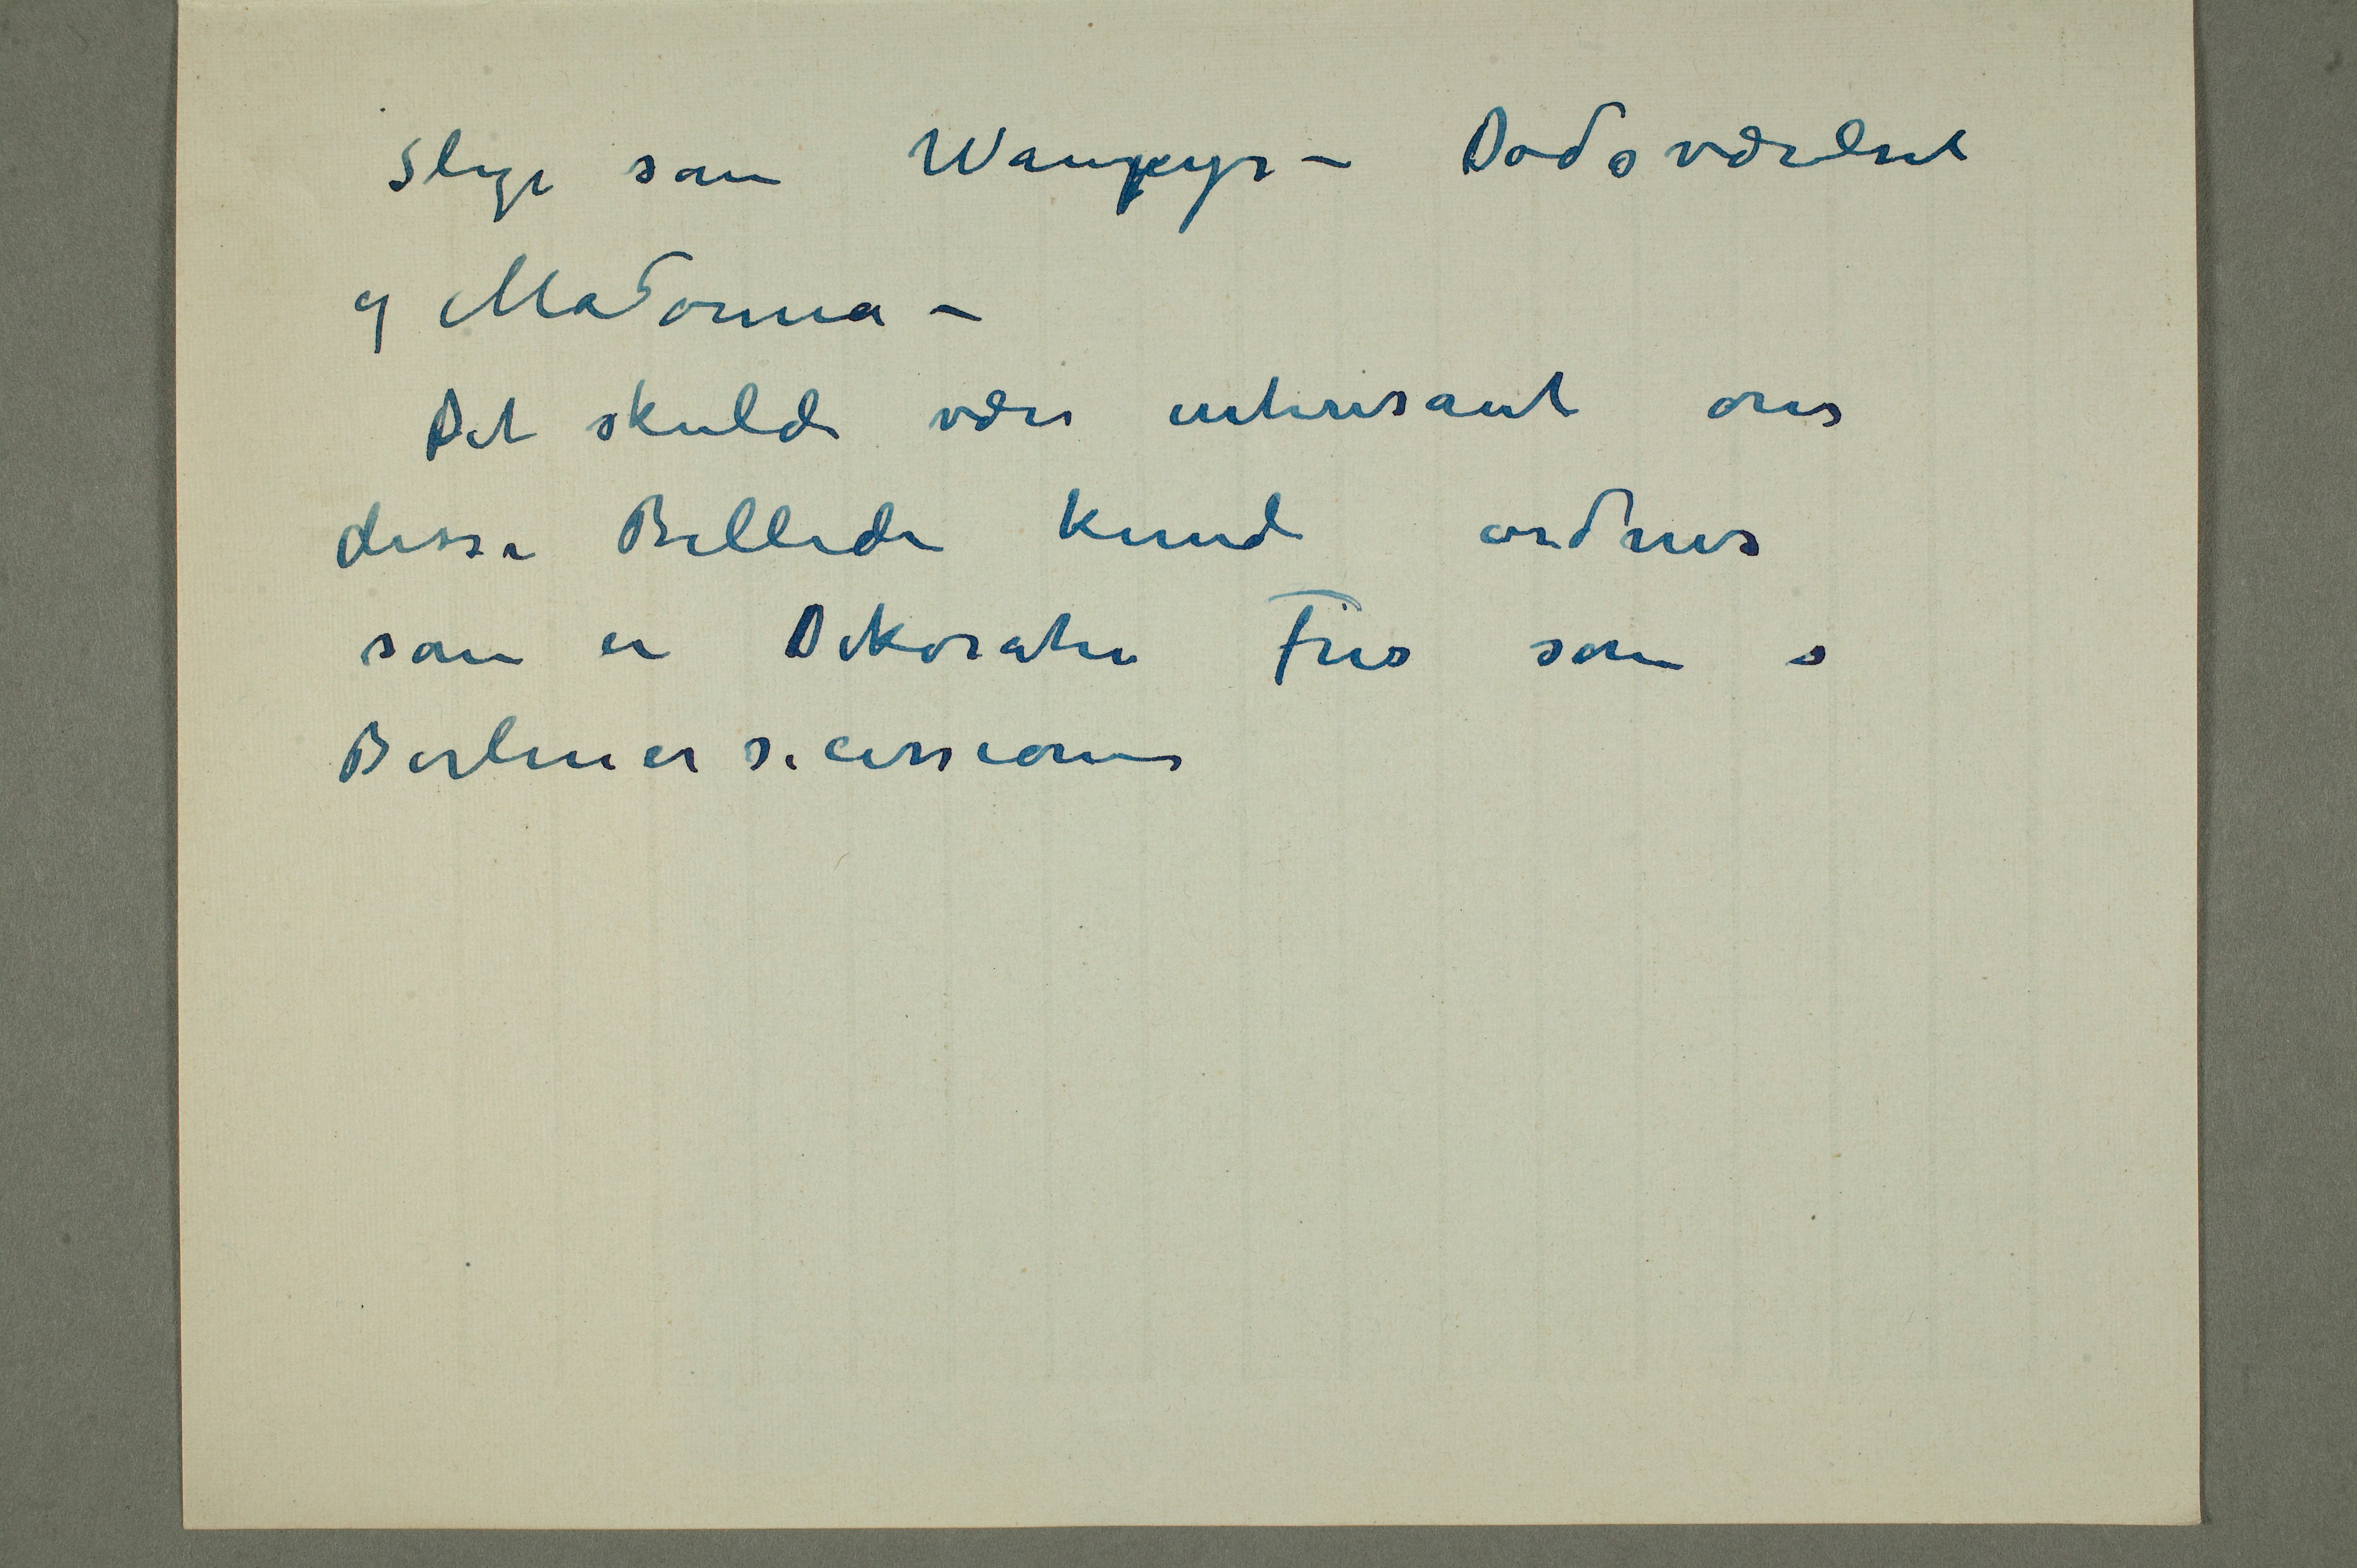 Slige som Wampyr – Dødsværelset
og Madonna –
Det skulde være interesant om
disse Billeder kunde ordnes
som en Dekorativ Fris som i
Berlinersecessionen